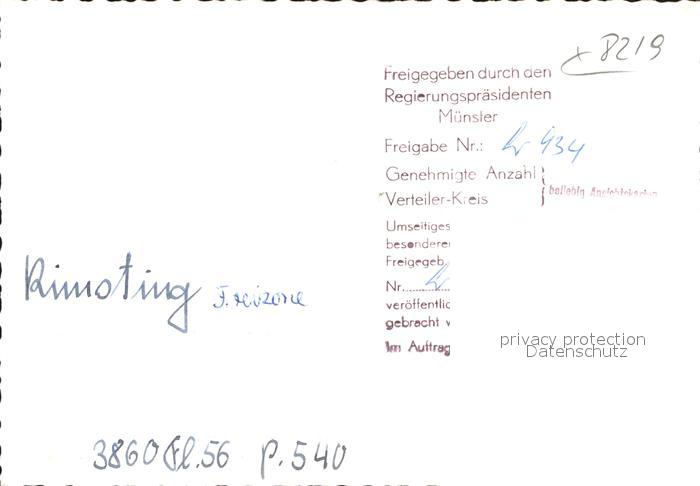 x 8219
Freigegeben durch den
Regierungspräsidenten
Münster
Freigabe Nr.: Lr 434
Genehmigte Anzahl
Verteiler-Kreis
beliebig Ansichtskarten
Umseitiges
besonderer
Freigegeb.
Nr. Lr
veröffentlic
gebracht v
Im Auftrag
Rimsting Freizone
privacy protection
Datenschutz
3860 Fl.56 P.540